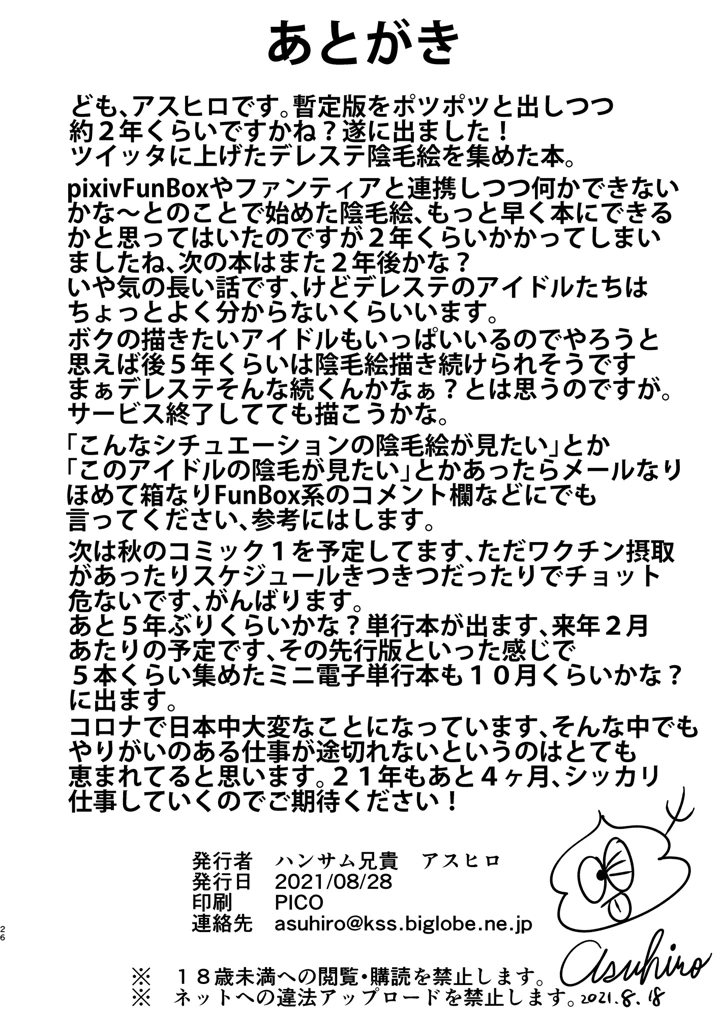 あとがき
ども、アスヒロです。暫定版をポツポツと出しつつ
約２年くらいですかね？遂に出ました！
ツイッタに上げたデレステ陰毛絵を集めた本。
pixivFunBoxやファンティアと連携しつつ何かできない
かな～とのことで始めた陰毛絵、もっと早く本にできる
かと思ってはいたのですが２年くらいかかってしまい
ましたね、次の本はまた２年後かな？
いや気の長い話です、けどデレステのアイドルたちは
ちょっとよく分からないくらいいます。
ボクの描きたいアイドルもいっぱいいるのでやろうと
思えば後５年くらいは陰毛絵描き続けられそうです
まぁデレステそんな続くんかなぁ？とは思うのですが。
サービス終了してても描こうかな。
「こんなシチュエーションの陰毛絵が見たい」とか
「このアイドルの陰毛が見たい」とかあったらメールなり
ほめて箱なりFunBox系のコメント欄などにでも
言ってください、参考にはします。
次は秋のコミック１を予定してます、ただワクチン摂取
があったりスケジュールきつきつだったりでチョット
危ないです、がんばります。
あと５年ぶりくらいかな？単行本が出ます、来年２月
あたりの予定です、その先行版といった感じで
５本くらい集めたミニ電子単行本も１０月くらいかな？
に出ます。
コロナで日本中大変なことになっています、そんな中でも
やりがいのある仕事が途切れないというのはとても
恵まれてると思います。２１年もあと４ヶ月、シッカリ
仕事していくのでご期待ください！
発行者　ハンサム兄貴　アスヒロ
発行日　2021/08/28
印刷　PICO
連絡先　asuhiro@kss.biglobe.ne.jp
26
asuhiro
※　１８歳未満への閲覧・購読を禁止します。
※　ネットへの違法アップロードを禁止します。2021.8.18